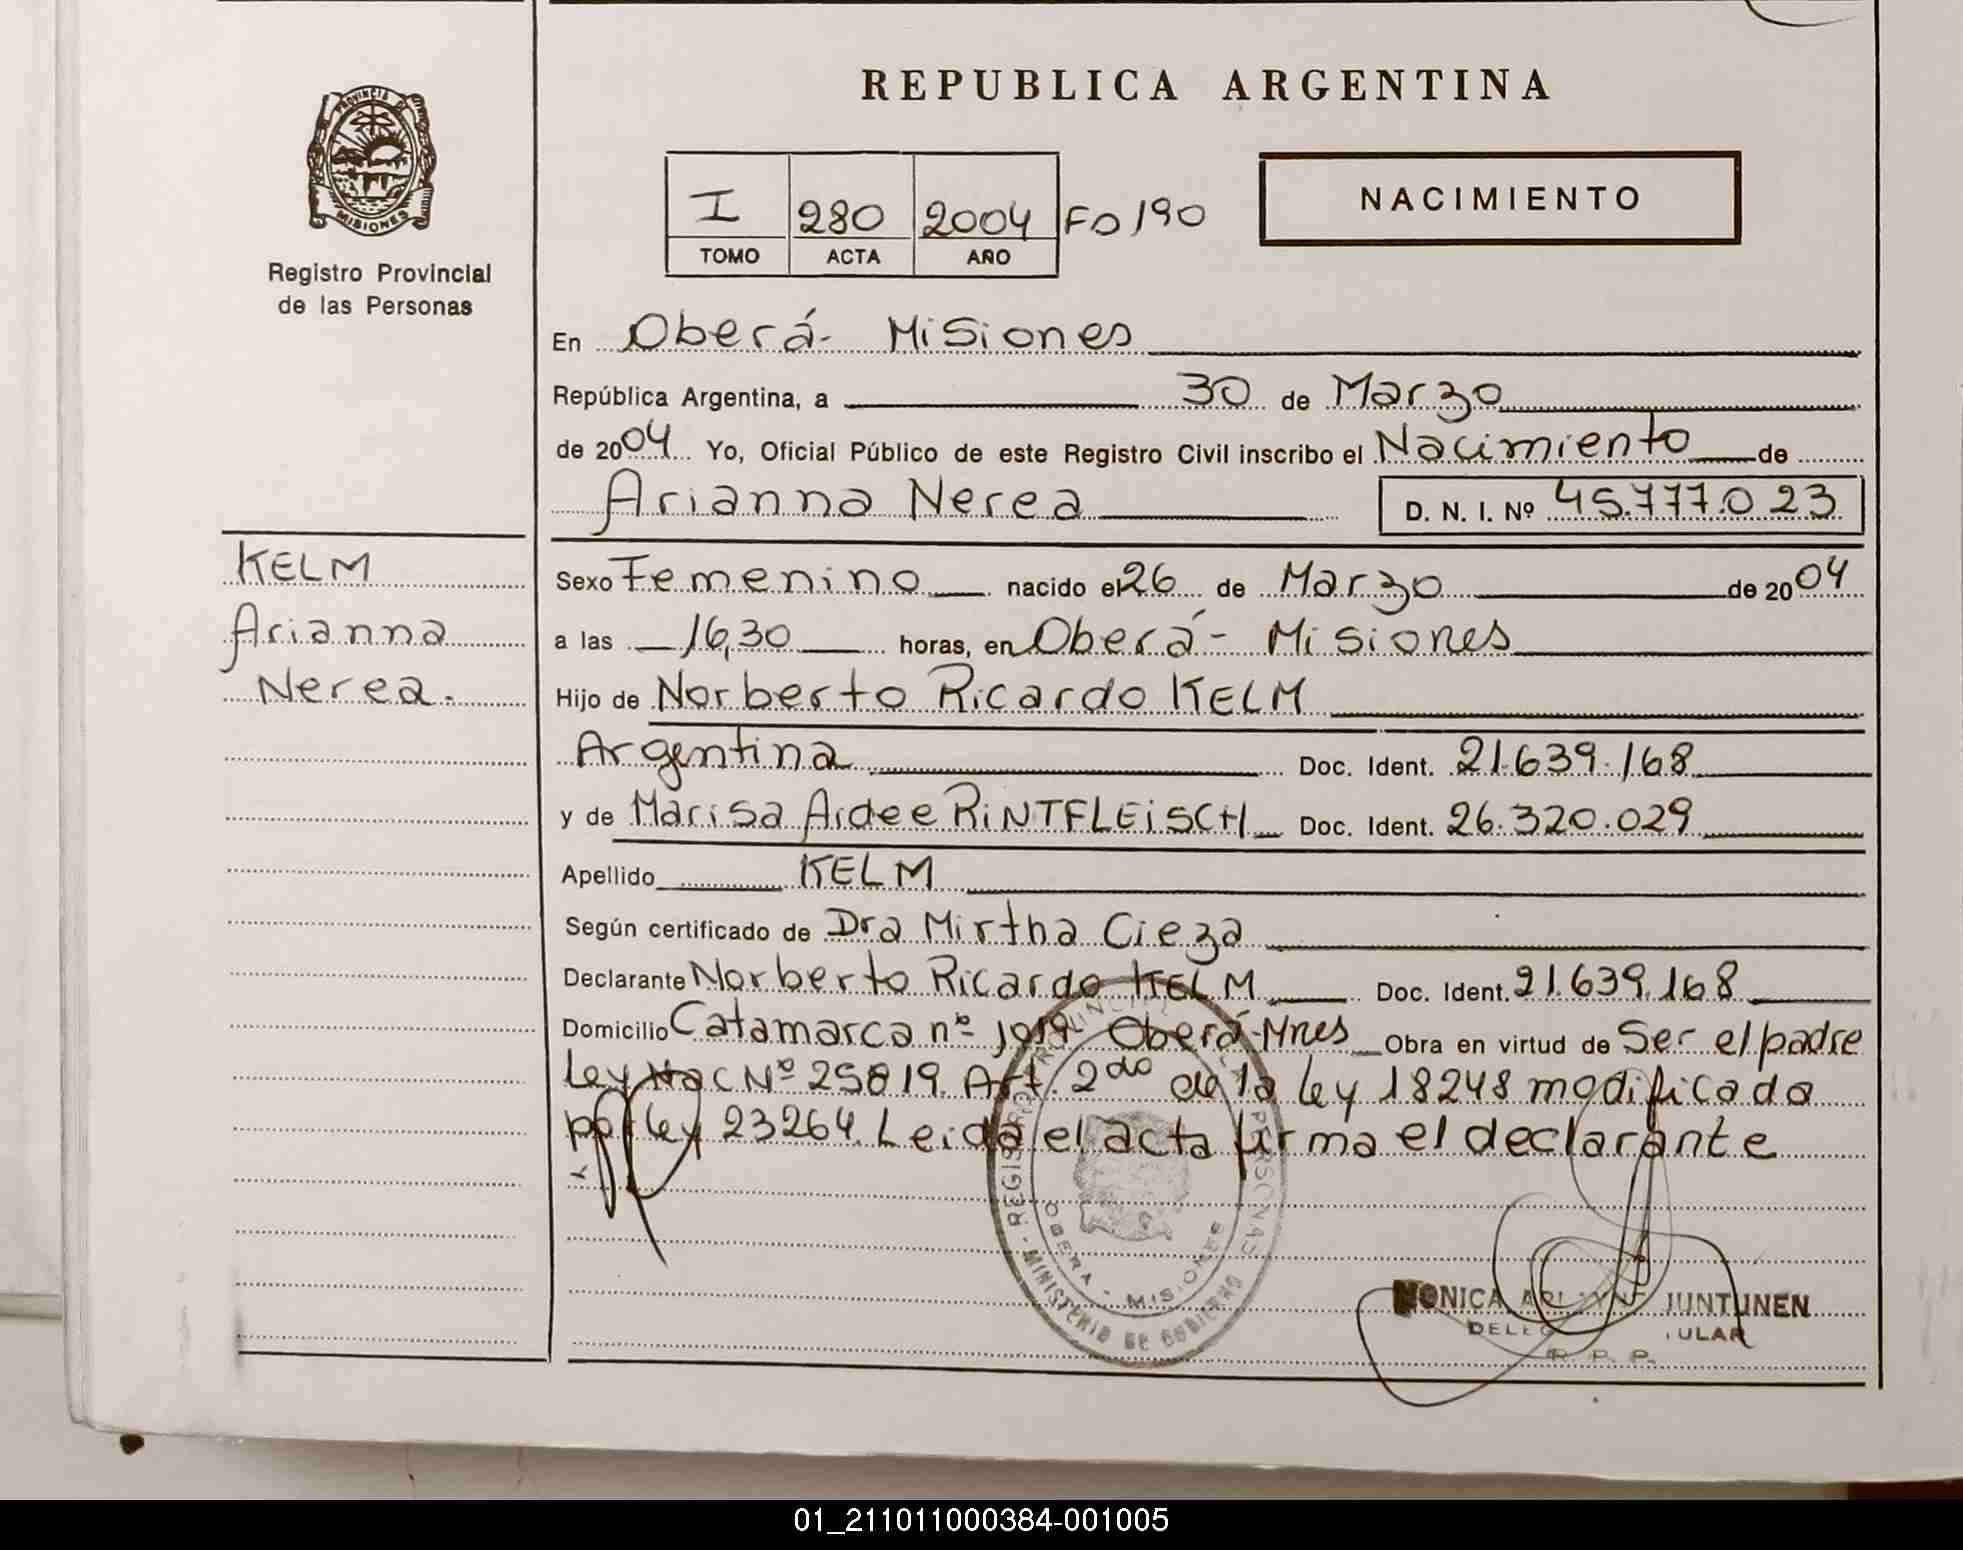 REPUBLICA ARGENTINA
PROVINCIA DE
MISIONES
Registro Provincial
de las Personas
I 280 2004 Fo 190
TOMO ACTA AÑO
NACIMIENTO
En Oberá - Misiones
República Argentina, a 30 de Marzo
de 2004 Yo, Oficial Público de este Registro Civil inscribo el Nacimiento de
Arianna Nerea D. N. I. Nº 45.777.023
KELM
Arianna
Nerea.
Sexo Femenino nacido el 26 de Marzo de 2004
a las 16,30 horas, en Oberá - Misiones
Hijo de Norberto Ricardo KELM
Argentina Doc. Ident. 21.639.168
y de Marisa Aidee RiNTFLEiSCH Doc. Ident. 26.320.029
Apellido KELM
Según certificado de Dra Mirtha Cieza
Declarante Norberto Ricardo KELM Doc. Ident. 21.639.168
Domicilio Catamarca nº Oberá-Mnes Obra en virtud de Ser el padre
Ley Nac Nº 25819. Art. 2do de la ley 18248 modificada
por ley 23264. Leida el acta firma el declarante
REGISTRO PROVINCIAL DE LAS PERSONAS
OBERA - MISIONES
MINISTERIO DE GOBIERNO
MONICA JUNTUNEN
R. P. P.
01_211011000384-001005